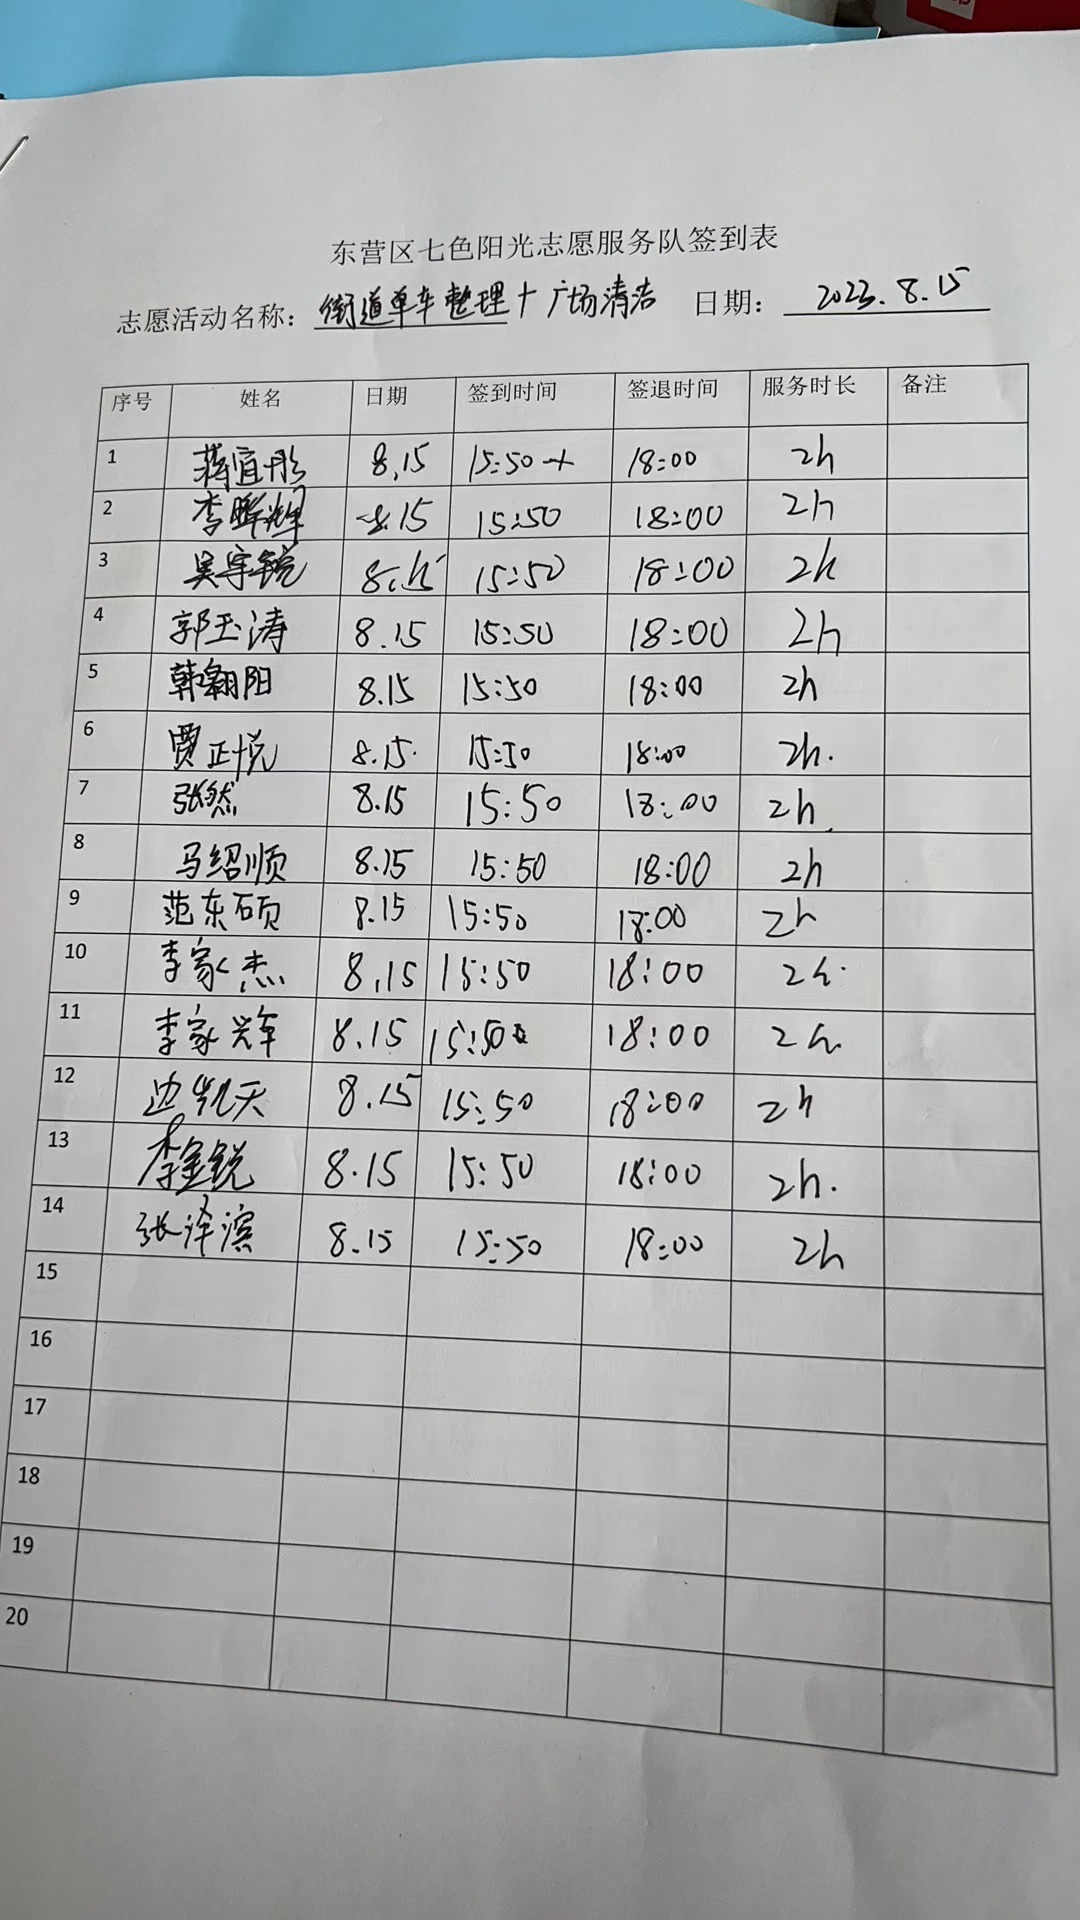 东营区七色阳光志愿服务队签到表
志愿活动名称：街道单车整理+广场清洁 日期：2023.8.15
序号 姓名 日期 签到时间 签退时间 服务时长 备注
1 蒋宜彤 8.15 15:50 18:00 2h
2 李晔辉 8.15 15:50 18:00 2h
3 吴宇锐 8.15 15:50 18:00 2h
4 郭玉涛 8.15 15:50 18:00 2h
5 韩翱阳 8.15 15:50 18:00 2h
6 贾正悦 8.15. 15:50 18:00 2h.
7 张然 8.15 15:50 18:00 2h
8 马绍顺 8.15 15:50 18:00 2h
9 范东硕 8.15 15:50 18:00 2h
10 李家杰 8.15 15:50 18:00 2h.
11 李家兴 8.15 15:50 18:00 2h.
12 边凯天 8.15 15:50 18:00 2h
13 李金锐 8.15 15:50 18:00 2h.
14 张泽滨 8.15 15:50 18:00 2h
15
16
17
18
19
20